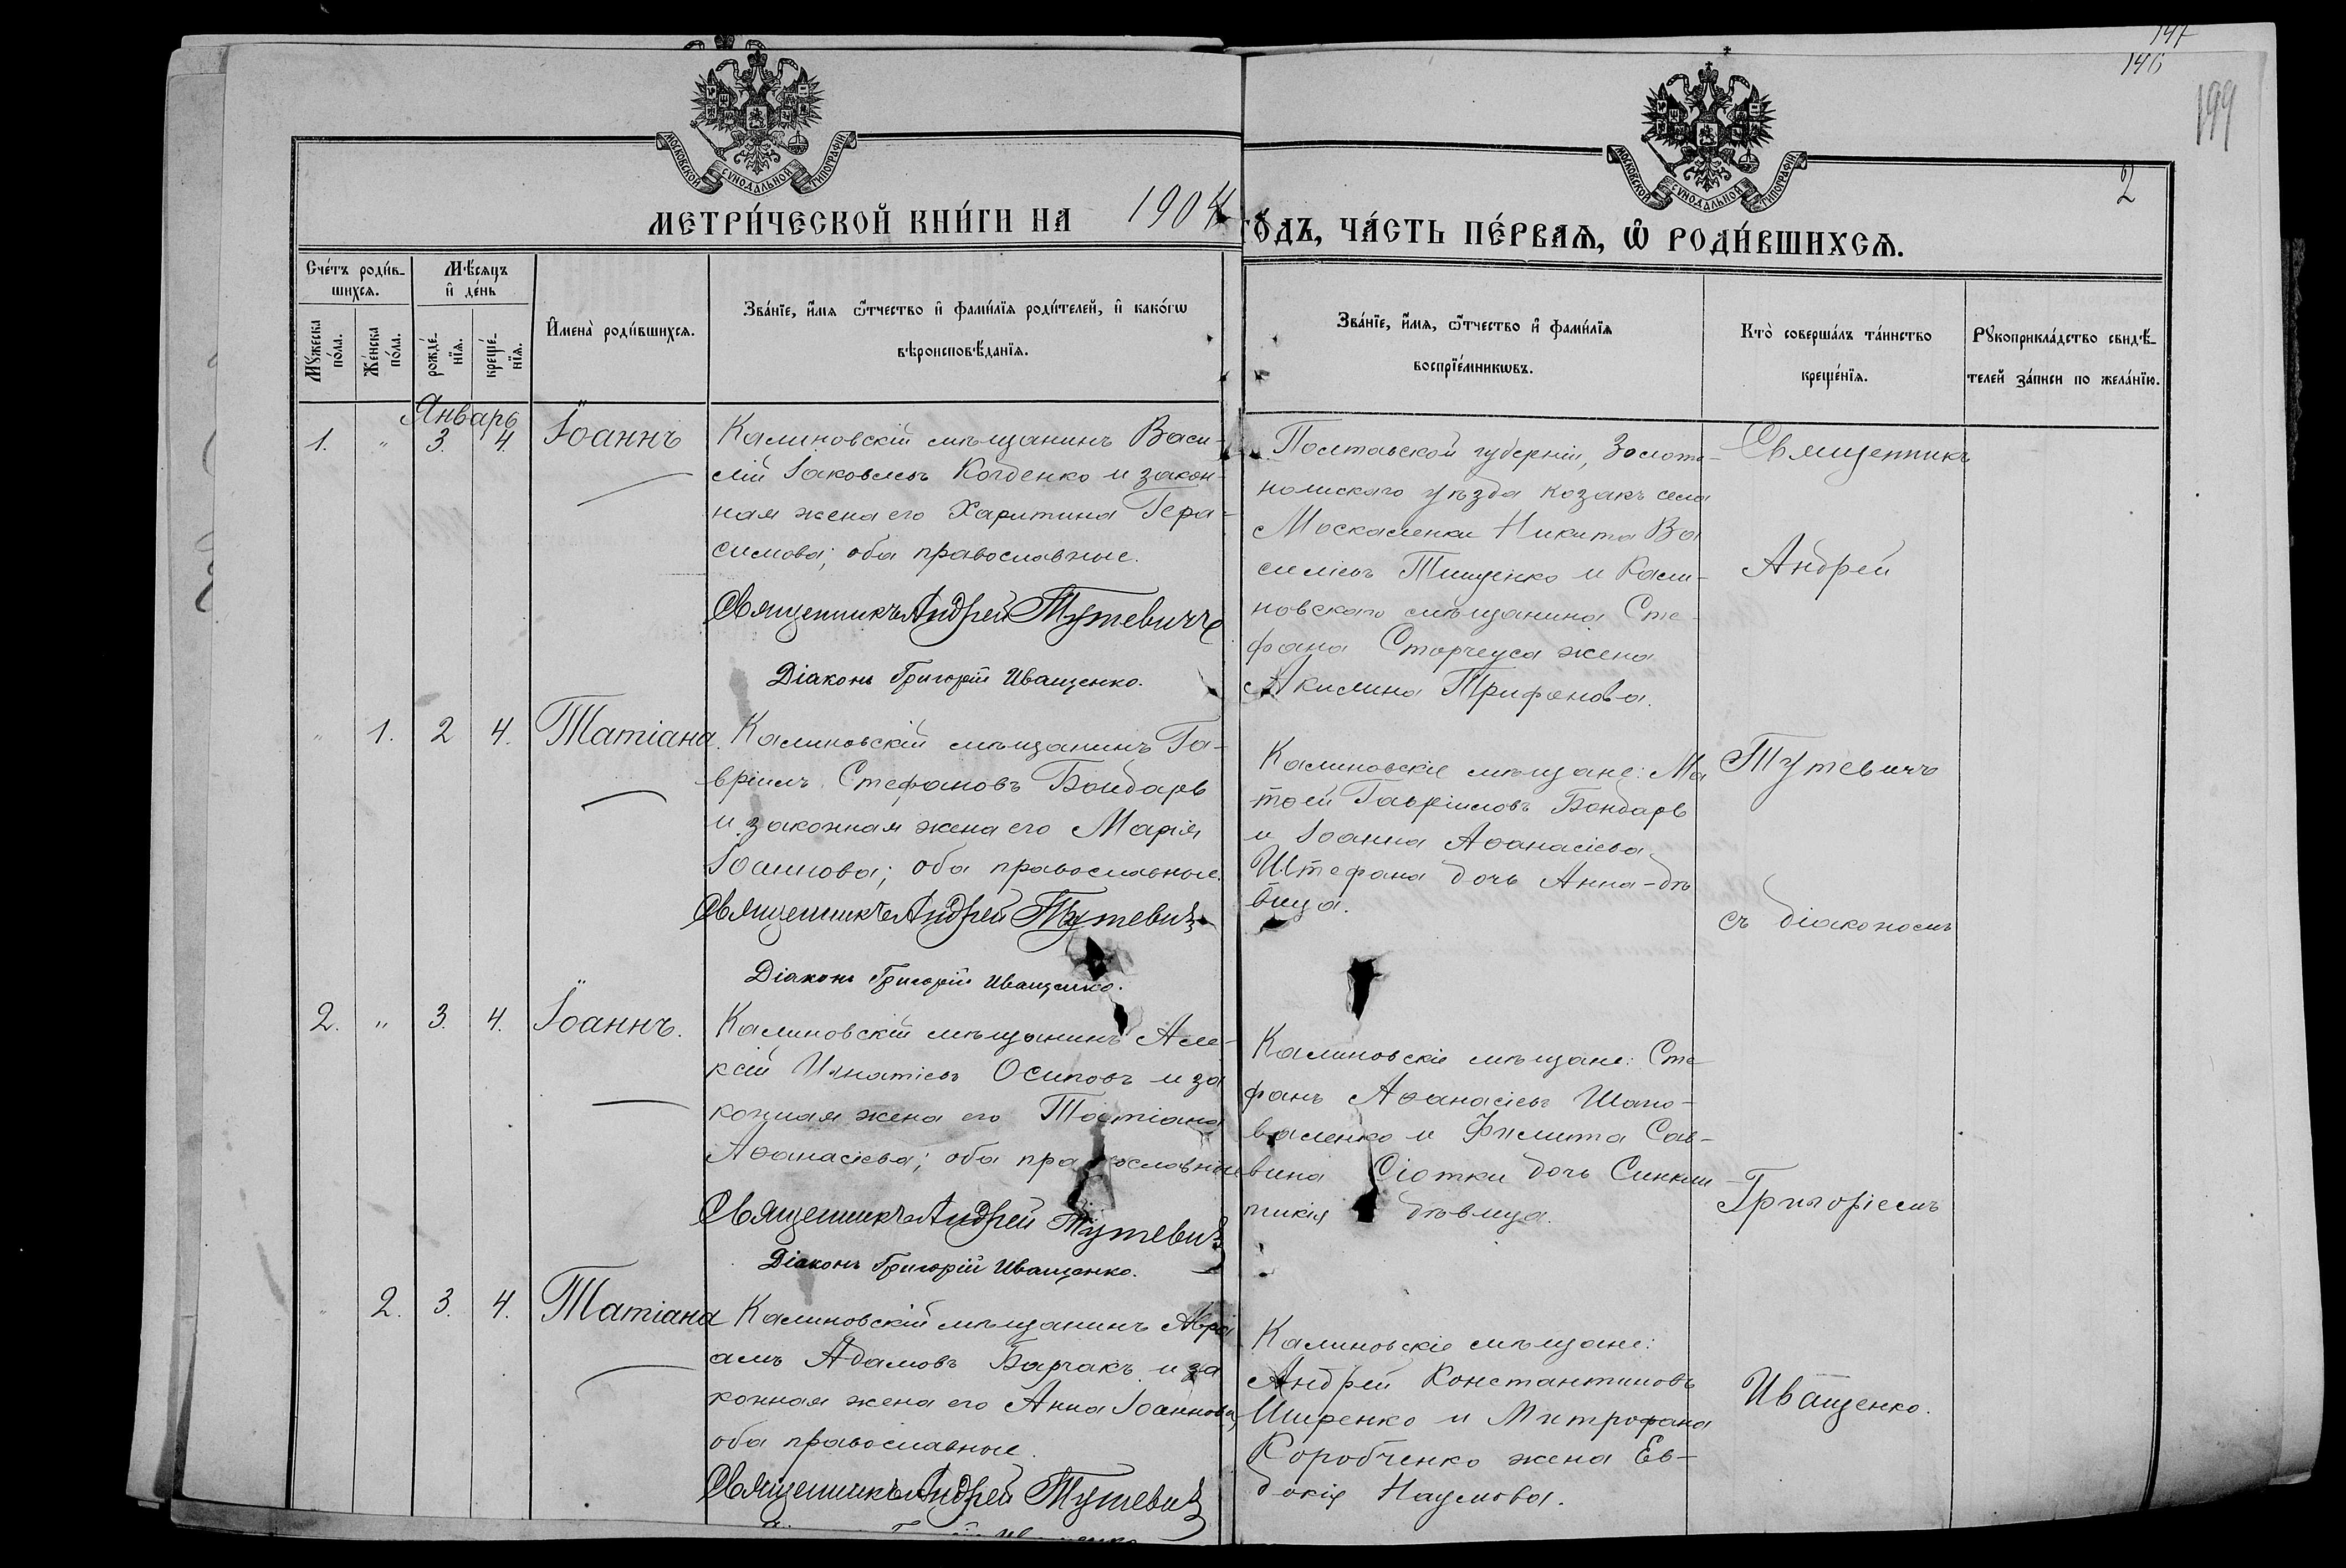 147
146
199
2
МОСКОВСКОЙ СѴНОДАЛЬНОЙ ТИПОГРАФІИ
МОСКОВСКОЙ СѴНОДАЛЬНОЙ ТИПОГРАФІИ
МЕТРИ́ЧЕСКОЙ КНИ́ГИ НА 1904 ГО́ДЪ, ЧА́СТЬ ПЕ́РВАѦ, Ѡ҆ РОДИ́ВШИХСѦ.
Сче́тъ роди́в-
шихсѧ.
Мѣ́сѧцъ
и҆ де́нь
Мꙋ́жеска
по́ла.
Же́нска
по́ла.
рожде́-
нїѧ.
креще́-
нїѧ.
И҆мена̀ роди́вшихсѧ.
Зва́нїе, и҆́мѧ ѻ҆́тчество и҆ фами́лїѧ роди́телей, и҆ како́гѡ
вѣроисповѣ́данїѧ.
Зва́нїе, и҆́мѧ, ѻ҆́тчество и҆ фами́лїѧ
воспрїе́мникѡвъ.
Кто̀ соверша́лъ та́инство
креще́нїѧ.
Рꙋкоприкла́дство свидѣ́-
телей за́писи по жела́нїю.
Январь
1. " 3. 4. Іоаннъ
Калиновскій мѣщанинъ Васи-
лій Іаковлевъ Когденко и закон-
ная жена его Харитина Гера-
симова; оба православные.
Священникъ Андрей Тутевичъ
Діаконъ Григорій Иващенко.
Полтавской губерніи, Золото-
ношскаго уѣзда козакъ села
Москаленки Никита Ва
силіевъ Тищенко и Кали-
новскаго мѣщанина Сте-
фана Сторчеуса жена
Акилина Трифонова.
Священникъ
Андрей
" 1. 2 4. Татіана.
Калиновскій мѣщанинъ Га-
вріилъ Стефановъ Бондарь
и законная жена его Марія
Іоаннова; оба православные.
Священникъ Андрей Тутевичъ
Діаконъ Григорій Иващенко.
Калиновскіе мѣщане: Ма
тѳей Гавріиловъ Бондарь
и Іоанна Аѳанасіева
Штефана дочь Анна-дѣ
вица.
Тутевичъ
съ діакономъ
2. " 3. 4. Іоаннъ.
Калиновскій мѣщанинъ Але-
ксій Игнатіевъ Осиповъ и за
конная жена его Татіана
Аѳанасіева; оба православные
Священникъ Андрей Тутевичъ
Діаконъ Григорій Иващенко.
Калиновскіе мѣщане: Сте
фанъ Аѳанасіевъ Шапо-
валенко и Филита Сав-
вина дочь Синкли
тикія дѣвица.
Григоріемъ
" 2. 3. 4. Татіана
Калиновскій мѣщанинъ Авра
амъ Адамовъ Барчакъ и за
конная жена его Анна Іоаннова,
оба православные.
Священникъ Андрей Тутевичъ
Калиновскіе мѣщане:
Андрей Константиновъ
Ширенко и Митрофана
Коробченко жена Ев-
докія Наумова.
Иващенко.